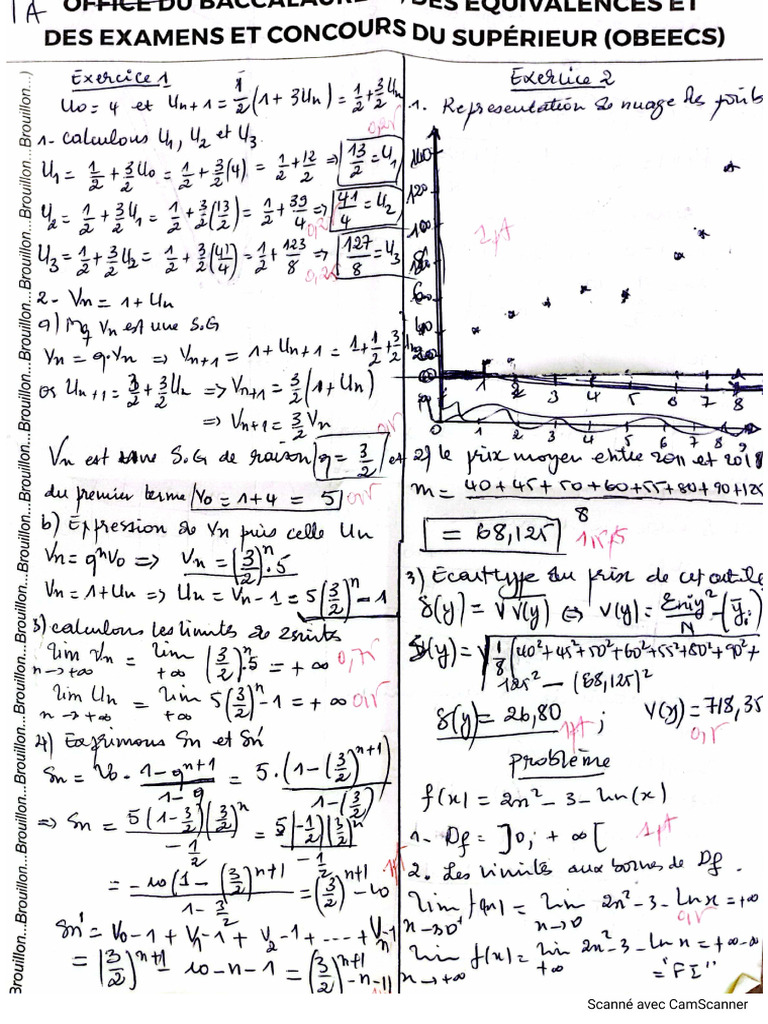 1A OFFICE DU BACCALAURE , DES EQUIVALENCES ET
DES EXAMENS ET CONCOURS DU SUPÉRIEUR (OBEECS)
Brouillon...Brouillon...Brouillon...Brouillon...Brouillon...Brouillon...Brouillon...Brouillon...Brouillon...Brouillon...)
Exercice 1
U0 = 4 et Un+1 = 1/2 (1 + 3Un) = 1/2 + 3/2 Un
1- calculons U1, U2 et U3
U1 = 1/2 + 3/2 U0 = 1/2 + 3/2 (4) = 1/2 + 12/2 ⇒ 13/2 = U1
U2 = 1/2 + 3/2 U1 = 1/2 + 3/2 (13/2) = 1/2 + 39/4 ⇒ 41/4 = U2
0,25
U3 = 1/2 + 3/2 U2 = 1/2 + 3/2 (41/4) = 1/2 + 123/8 ⇒ 127/8 = U3
0,25
2- Vn = 1 + Un
a) Mq Vn est une S.G
Vn = q.Vn ⇒ Vn+1 = 1 + Un+1 = 1 + 1/2 + 3/2 Un
or Un+1 = 3/2 + 3/2 Un ⇒ Vn+1 = 3/2 (1 + Un)
⇒ Vn+1 = 3/2 Vn
Vn est une S.G de raison q = 3/2 et
du premier terme V0 = 1 + 4 = 5
b) Expression de Vn puis celle Un
Vn = q^n V0 ⇒ Vn = (3/2)^n . 5
Vn = 1 + Un ⇒ Un = Vn - 1 = 5(3/2)^n - 1
3) calculons les limites de 2 suites
lim n→+∞ Vn = lim +∞ (3/2)^n . 5 = +∞ 0,75
lim n→+∞ Un = lim +∞ 5(3/2)^n - 1 = +∞
4) Exprimons Sn et Sn'
Sn = V0 . (1 - q^n+1)/(1 - q) = 5 . (1 - (3/2)^n+1)/(1 - (3/2))
⇒ Sn = 5(1 - 3/2)(3/2)^n / -1/2 = 5(-1/2)(3/2)^n / -1/2
= -10(1 - (3/2)^n+1)/(1 - 3/2) = (3/2)^n+1 - 10
Sn' = V0 - 1 + V1 - 1 + V2 - 1 + .... + Vn - 1
= (3/2)^n+1 - 10 - n - 1 = (3/2)^n+1 - n - 11
Exercice 2
1. Représentation de nuage des points
1pt
140
120
100
80
60
40
20
1 2 3 4 5 6 7 8
0 1 2 3 4 5 6 7 8 9
2) le prix moyen entre 2011 et 2018
m = (40 + 45 + 50 + 60 + 55 + 80 + 90 + 125)/8
= 68,125
3) Ecart type du prix de cet outil
δ(y) = √V(y) ⇔ V(y) = Σniy²/N - (ȳi)
δ(y) = √1/8 (40² + 45² + 50² + 60² + 55² + 80² + 90² +
125² - (68,125)²
δ(y) = 26,80 ; V(y) = 718,35
Problème
f(x) = 2x² - 3 - ln(x)
1. Df = ]0; +∞[ 1pt
2. Les limites aux bornes de Df.
lim x→0+ f(x) = lim x→0 2x² - 3 - ln x = +∞
lim x→+∞ f(x) = lim +∞ 2x² - 3 - ln x = +∞ - ∞
= "FI"
Scanné avec CamScanner